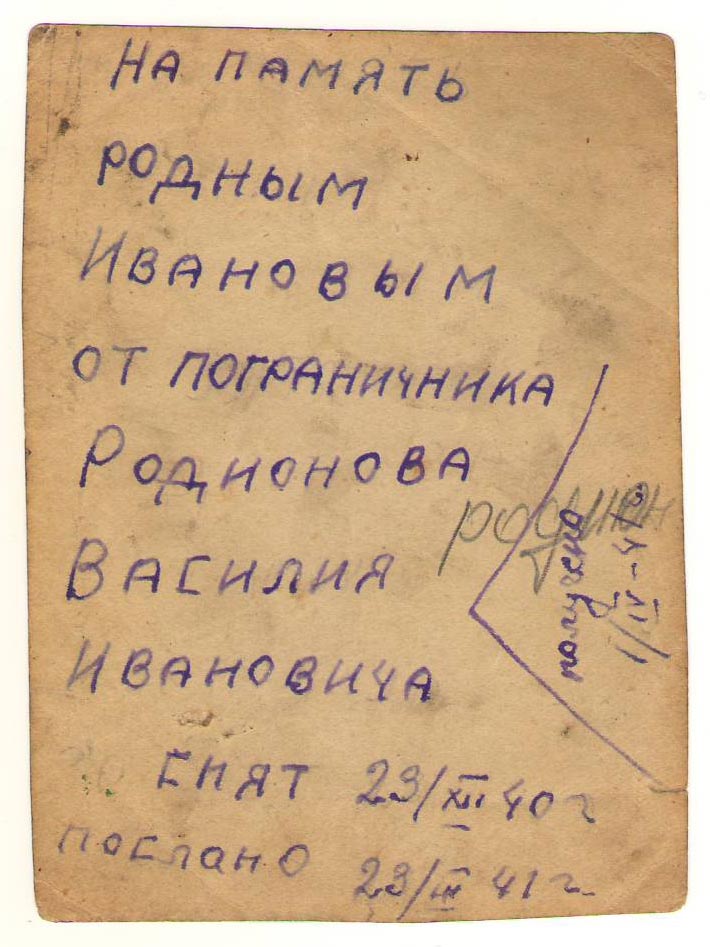 На память
родным
Ивановым
от пограничника
Родионова
Василия
Ивановича
Снят 23/XII 40 г
послано 23/III 41 г.
родион
получено
1/IV-41 г